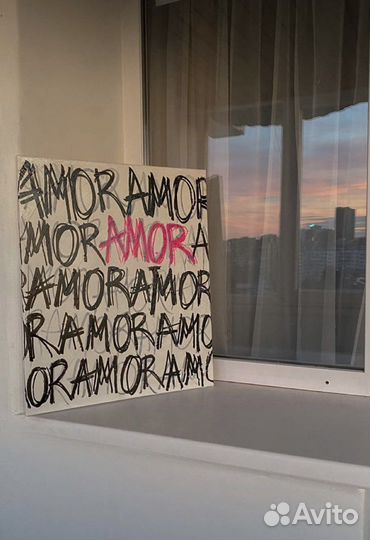 AMORAMOR
MORAMORA
RAMORAMOR
ORAMORAMO
ORAMORAMO
Avito